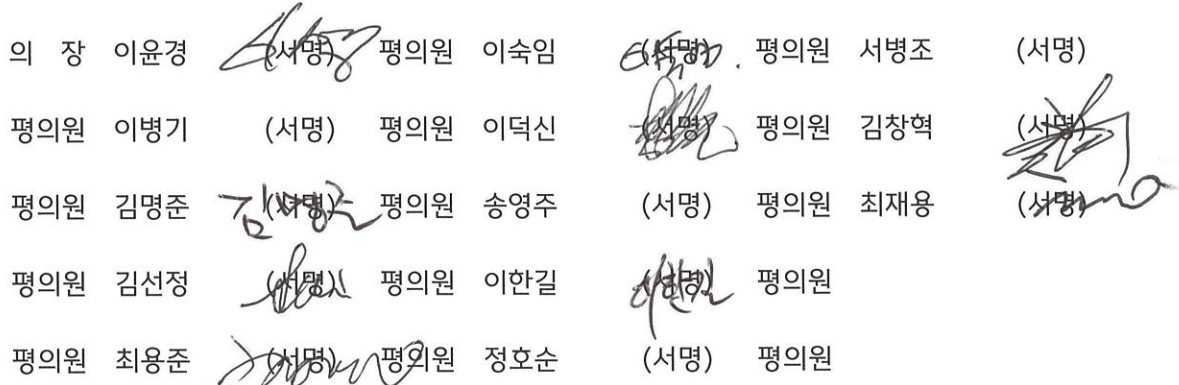 의 장 이윤경 (서명) 평의원 이숙임 (서명) 평의원 서병조 (서명)
평의원 이병기 (서명) 평의원 이덕신 (서명) 평의원 김창혁 (서명)
평의원 김명준 (서명) 평의원 송영주 (서명) 평의원 최재용 (서명)
평의원 김선정 (서명) 평의원 이한길 (서명) 평의원
평의원 최용준 (서명) 평의원 정호순 (서명) 평의원